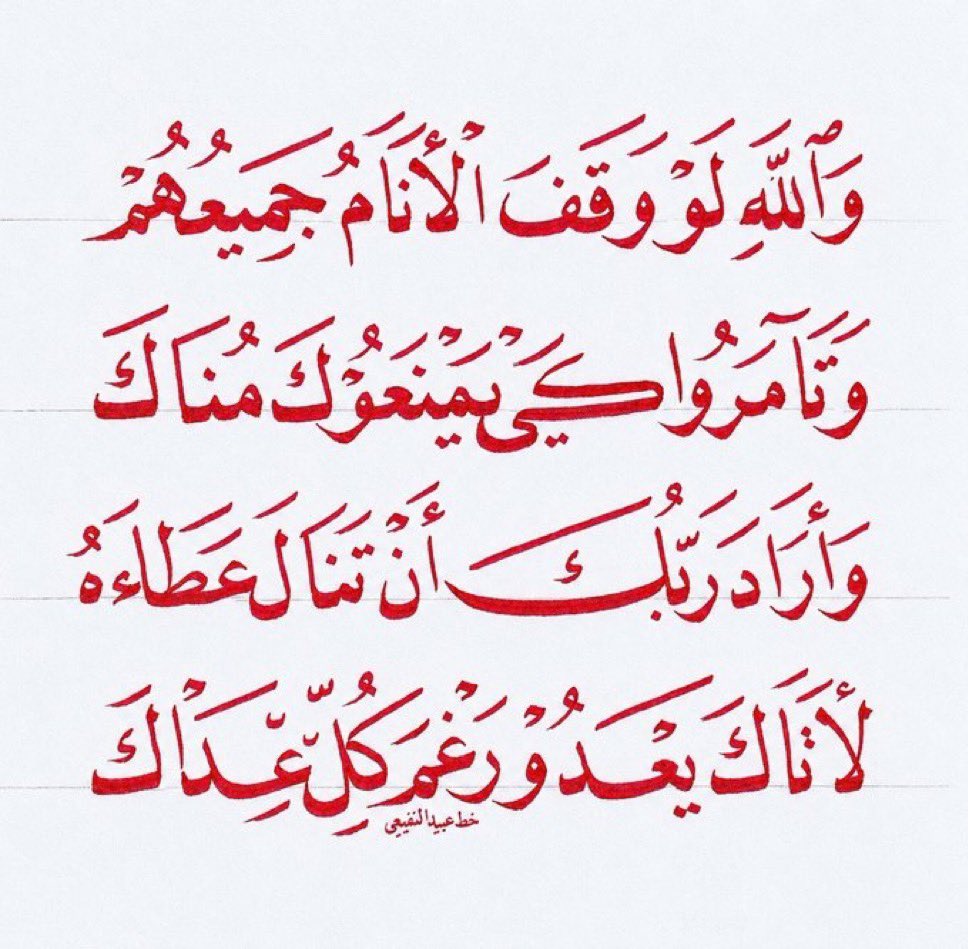 وَٱللَّهِ لَوْ وَقَفَ الْأَنَامُ جَمِيعُهُمْ
وَتَآمَرُوا كَيْ يَمْنَعُوْكَ مُنَاكَ
وَأَرَادَ رَبُّكَ أَنْ تَنَالَ عَطَاءَهُ
لَأَتَاكَ يَعْدُوْ رَغْمَ كُلِّ عِدَاكَ
خط عبيد النفيعي